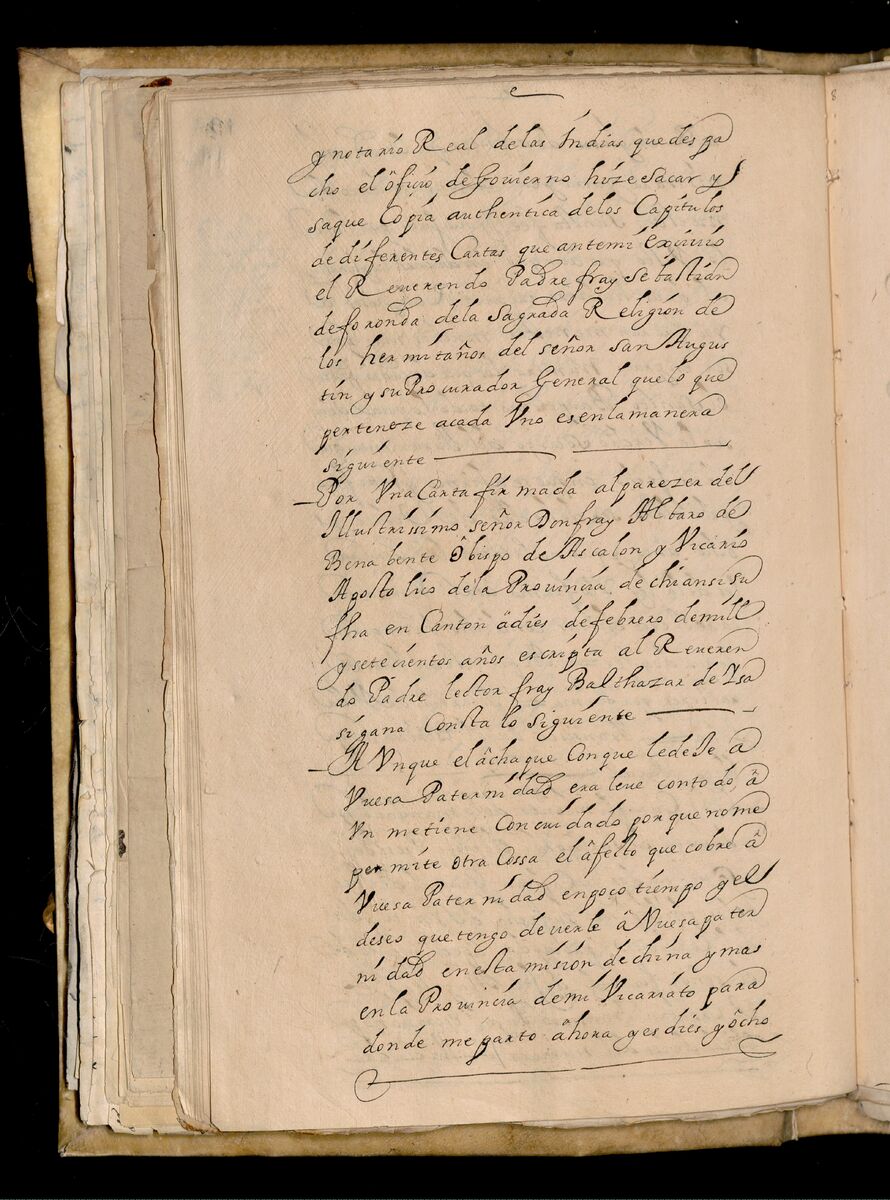 y notario Real de las Indias que despa
cho el ôficio de Govierno hize sacar y
saque Copia authentica de los Capitulos
de diferentes Cartas que antemi exiuio
el Reuerendo Padre fray Sebastian
de foronda de la Sagrada Religion de
los hermitaños del señor san Augus
tin y su Procurador General que lo que
perteneze acada Vno es en la manera
siguiente
Por Vna Carta firmada al parezer del
Illustrissimo señor Don fray Albaro de
Bena bente Ôbispo de Ascalon y Vicario
Apostolico de la Provincia de chiansi su
fha en Canton â dies de febrero de mill
y setecientos años escripta al Reueren
do Padre lector fray Balthazar de Ysa
sigana Consta lo siguiente
AVnque el âchaque Con que le dexe â
Vuesa Paternidad era leue con todo, â
Vn me tiene Con cuidado por que no me
permite otra Cossa el âfecto que cobre â
Vuesa Paternidad en poco tiempo y el
deseo que tengo de verle â Vuesa pater
nidad en esta mision de china y mas
en la Provincia de mi Vicariato para
donde me parto âhora y es dies y ôcho
8